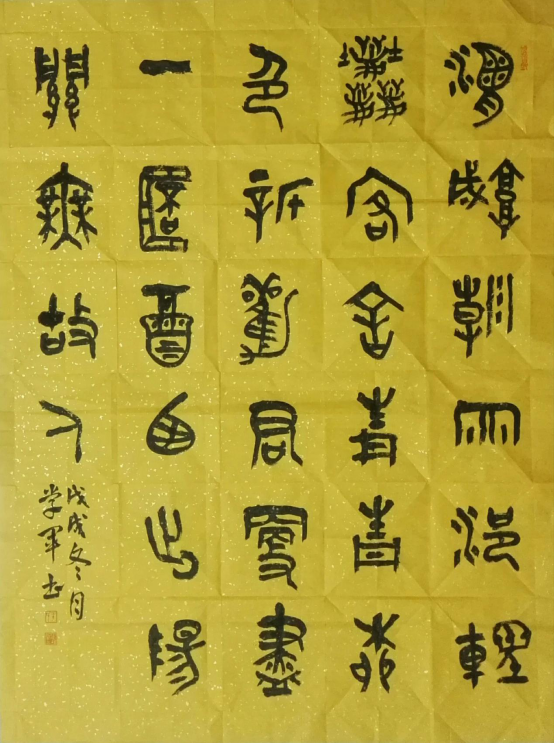 渭城朝雨浥輕
塵客舍青青柳
色新勸君更盡
一杯酒西出陽
關無故人
戊戌冬月
学军书